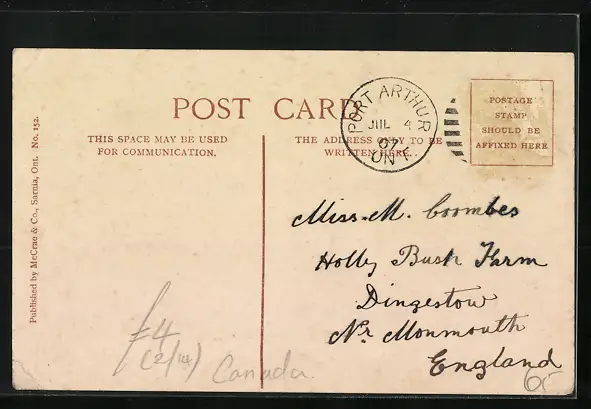 POST CARD
THIS SPACE MAY BE USED
FOR COMMUNICATION.
THE ADDRESS ONLY TO BE
WRITTEN HERE.
PORT ARTHUR
JUL 4
07
ONT.
POSTAGE
STAMP
SHOULD BE
AFFIXED HERE
Published by McCrae & Co., Sarnia, Ont. No. 152.
Miss. M. Coombes
Holly Bush Farm
Dingestow
Nr. Monmouth
England
£4
Canada